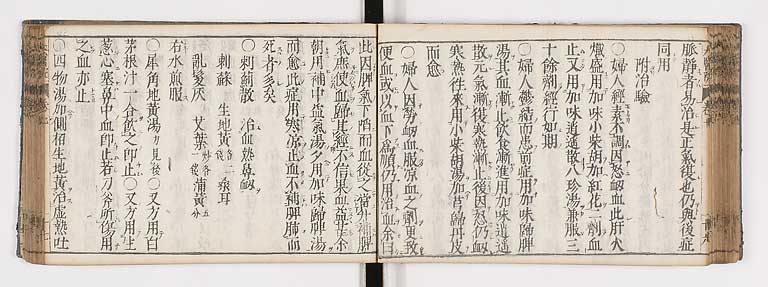 脈靜者易治是正氣復也仍與後症
同用
附治驗
○婦人經素不調因怒衂血此肝火
熾盛用加味小柴胡加紅花二劑血
止又用加味逍遙散八珍湯兼服三
十餘劑經行如期
○婦人鬱結而患前症用加味歸脾
湯其血漸止飲食漸進用加味逍遙
散元氣漸復寒熱漸止後因怒仍衂
寒熱往來用小柴胡湯加芎歸丹皮
而愈
○婦人因勞衂血服凉血之劑更致
便血或以血下爲順仍用治血余曰
此因脾氣下陷而血從之當升補脾
氣庶使血歸其經不信果血益甚余
朝用補中益氣湯夕用加味歸脾湯
而愈此症用寒凉止血不補脾肺而
死者多矣
○刺薊散 治血熱鼻衂
刺蘇 生地黄各二兩 桑耳
亂髮灰 艾葉炒各一兩 蒲黄五分
右水煎服
○犀角地黄湯方見後 ○又方用白
茅根汁一合飲之卽止○又方用生
葱心塞鼻中血卽止若刀斧所傷用
之血亦止
○四物湯加側柏生地黄治虛熱吐